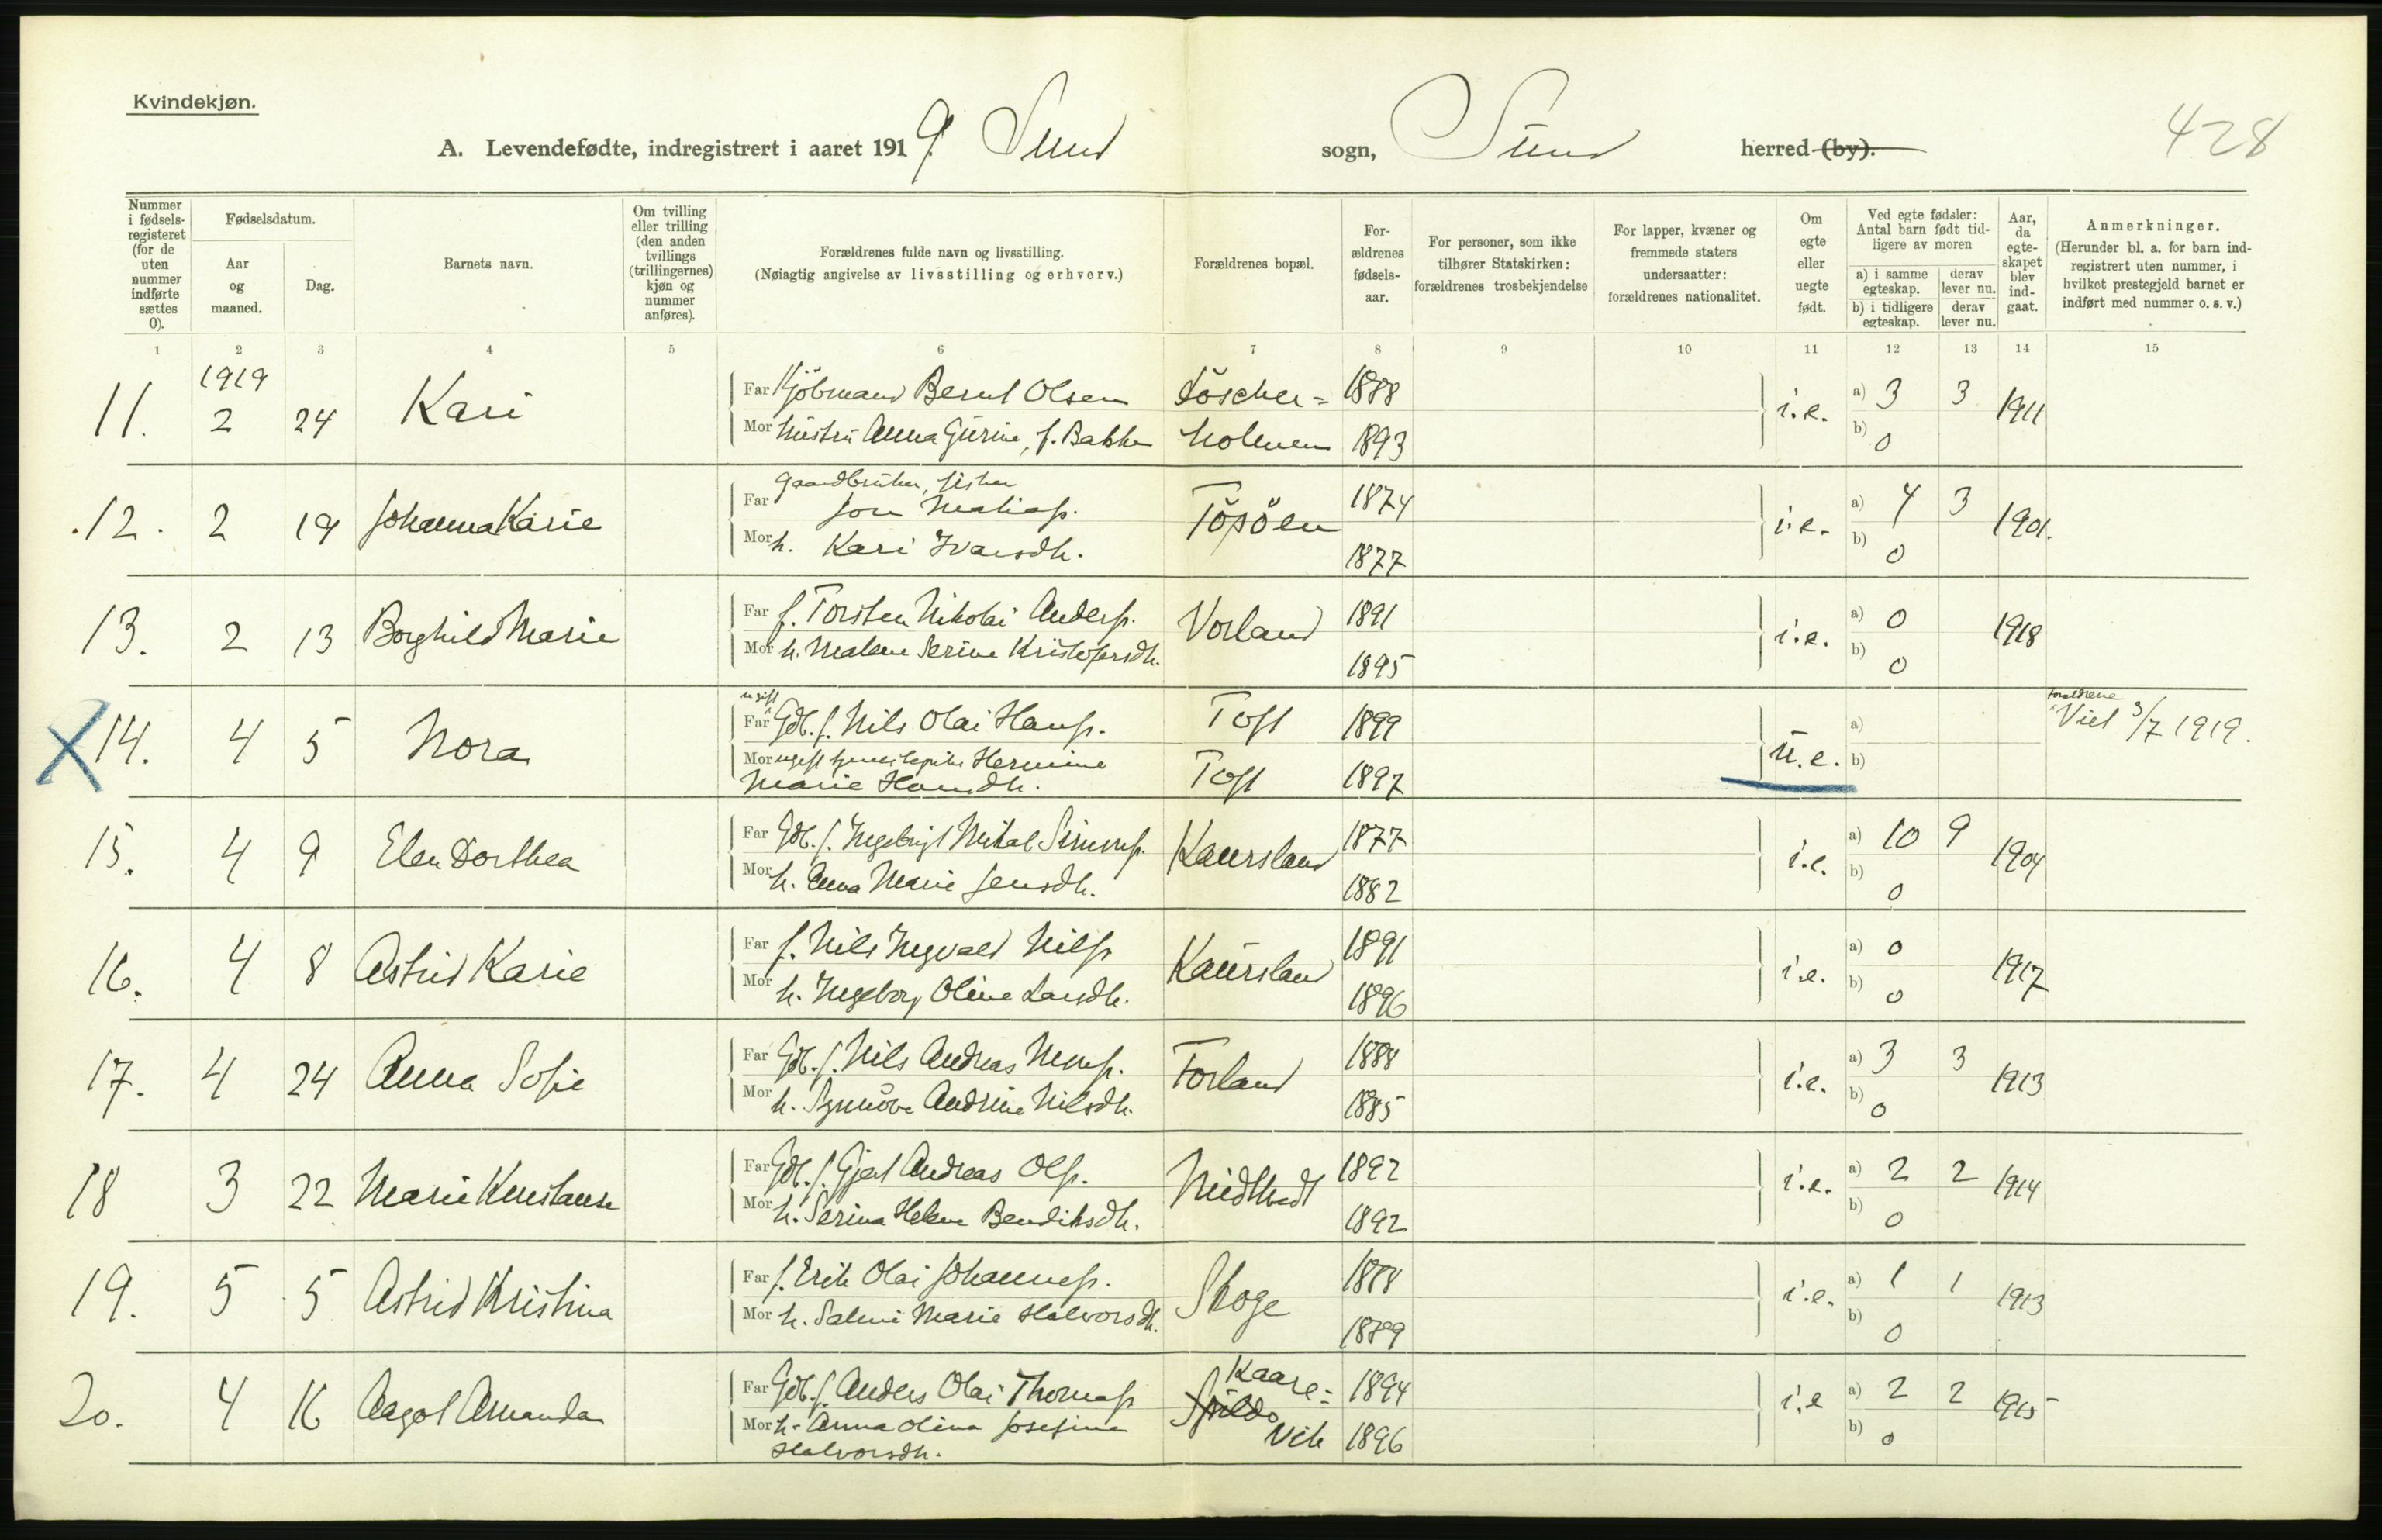 Kvindekjøn.
428
A. Levendefødte, indregistrert i aaret 1919. Sund sogn, Sund herred (by).
Nummer i fødsels-registeret (for de uten nummer indførte sættes 0).
Fødselsdatum.
Aar og maaned.
Dag.
Barnets navn.
Om tvilling eller trilling (den anden tvillings (trillingernes) kjøn og nummer anføres).
Forældrenes fulde navn og livsstilling.
(Nøiagtig angivelse av livsstilling og erhverv.)
Forældrenes bopæl.
For-ældrenes fødsels-aar.
For personer, som ikke tilhører Statskirken: forældrenes trosbekjendelse
For lapper, kvæner og fremmede staters undersaatter: forældrenes nationalitet.
Om egte eller uegte født.
Ved egte fødsler: Antal barn født tid-ligere av moren
a) i samme egteskap.
derav lever nu.
b) i tidligere egteskap.
derav lever nu.
Aar, da egte-skapet blev ind-gaat.
Anmerkninger.
(Herunder bl. a. for barn ind-registrert uten nummer, i hvilket prestegjeld barnet er indført med nummer o. s. v.)
1 2 3 4 5 6 7 8 9 10 11 12 13 14 15
1919
11. 2 24 Kari Far Kjöbmand Bernt Olsen Löscher= 1888 i.e. a) 3 3 1911
Mor Hustru Anna Gurine, f. Bakke holmen 1893 b) 0
Gaardbruker, fisker
12. 2 19 Johanna Karie Far Jon Matiass. Töpöen 1874 i.e. a) 4 3 1901.
Mor h. Kari Ivarsdtr. 1877 b) 0
13. 2 13 Borghild Marie Far f. Torsten Nikolai Anderss. Vorland 1891 i.e. a) 0 1918
Mor h. Malene Serine Kristofersdtr. 1895 b) 0
ugift
X 14. 4 5 Nora Far Gdb. f. Nils Olai Hanss. Toft 1899 u.e. a) Forældrene Viet 3/7 1919.
Mor ugift Hermine Toft 1897 b)
Marie Hansdtr.
15. 4 9 Elen Dorthea Far Gdb. f. Ingebrigt Mikal Simons. Kaursland 1877 i.e. a) 10 9 1904
Mor h. Anna Marie Jensdtr. 1882 b) 0
16. 4 8 Astrid Karie Far f. Nils Ingvald Nilss. Kaursland 1891 i.e. a) 0 1917
Mor h. Ingeborg Oline Larsdtr. 1896 b) 0
17. 4 24 Anna Sofie Far Gdb. f. Nils Andreas Monss. Forland 1888 i.e. a) 3 3 1913
Mor h. Synnöve Andrine Nilsdtr. 1885 b) 0
18 3 22 Marie Konstanse Far Gdb. f. Gjert Andreas Ols. Midttveit 1892 i.e. a) 2 2 1914
Mor h. Serina Helene Bendiksdtr. 1892 b) 0
19. 5 5 Astrid Kristina Far f. Erik Olai Johanness. Skoge 1888 i.e. a) 1 1 1913
Mor h. Salmi Marie Halvorsdtr. 1889 b) 0
20. 4 16 Aagot Amanda Far Gdb. f. Anders Olai Thomass Kaare= 1894 i.e a) 2 2 1915
Spildo
Mor h. Anna Olina Josefine Vik 1896 b) 0
Halvorsdtr.